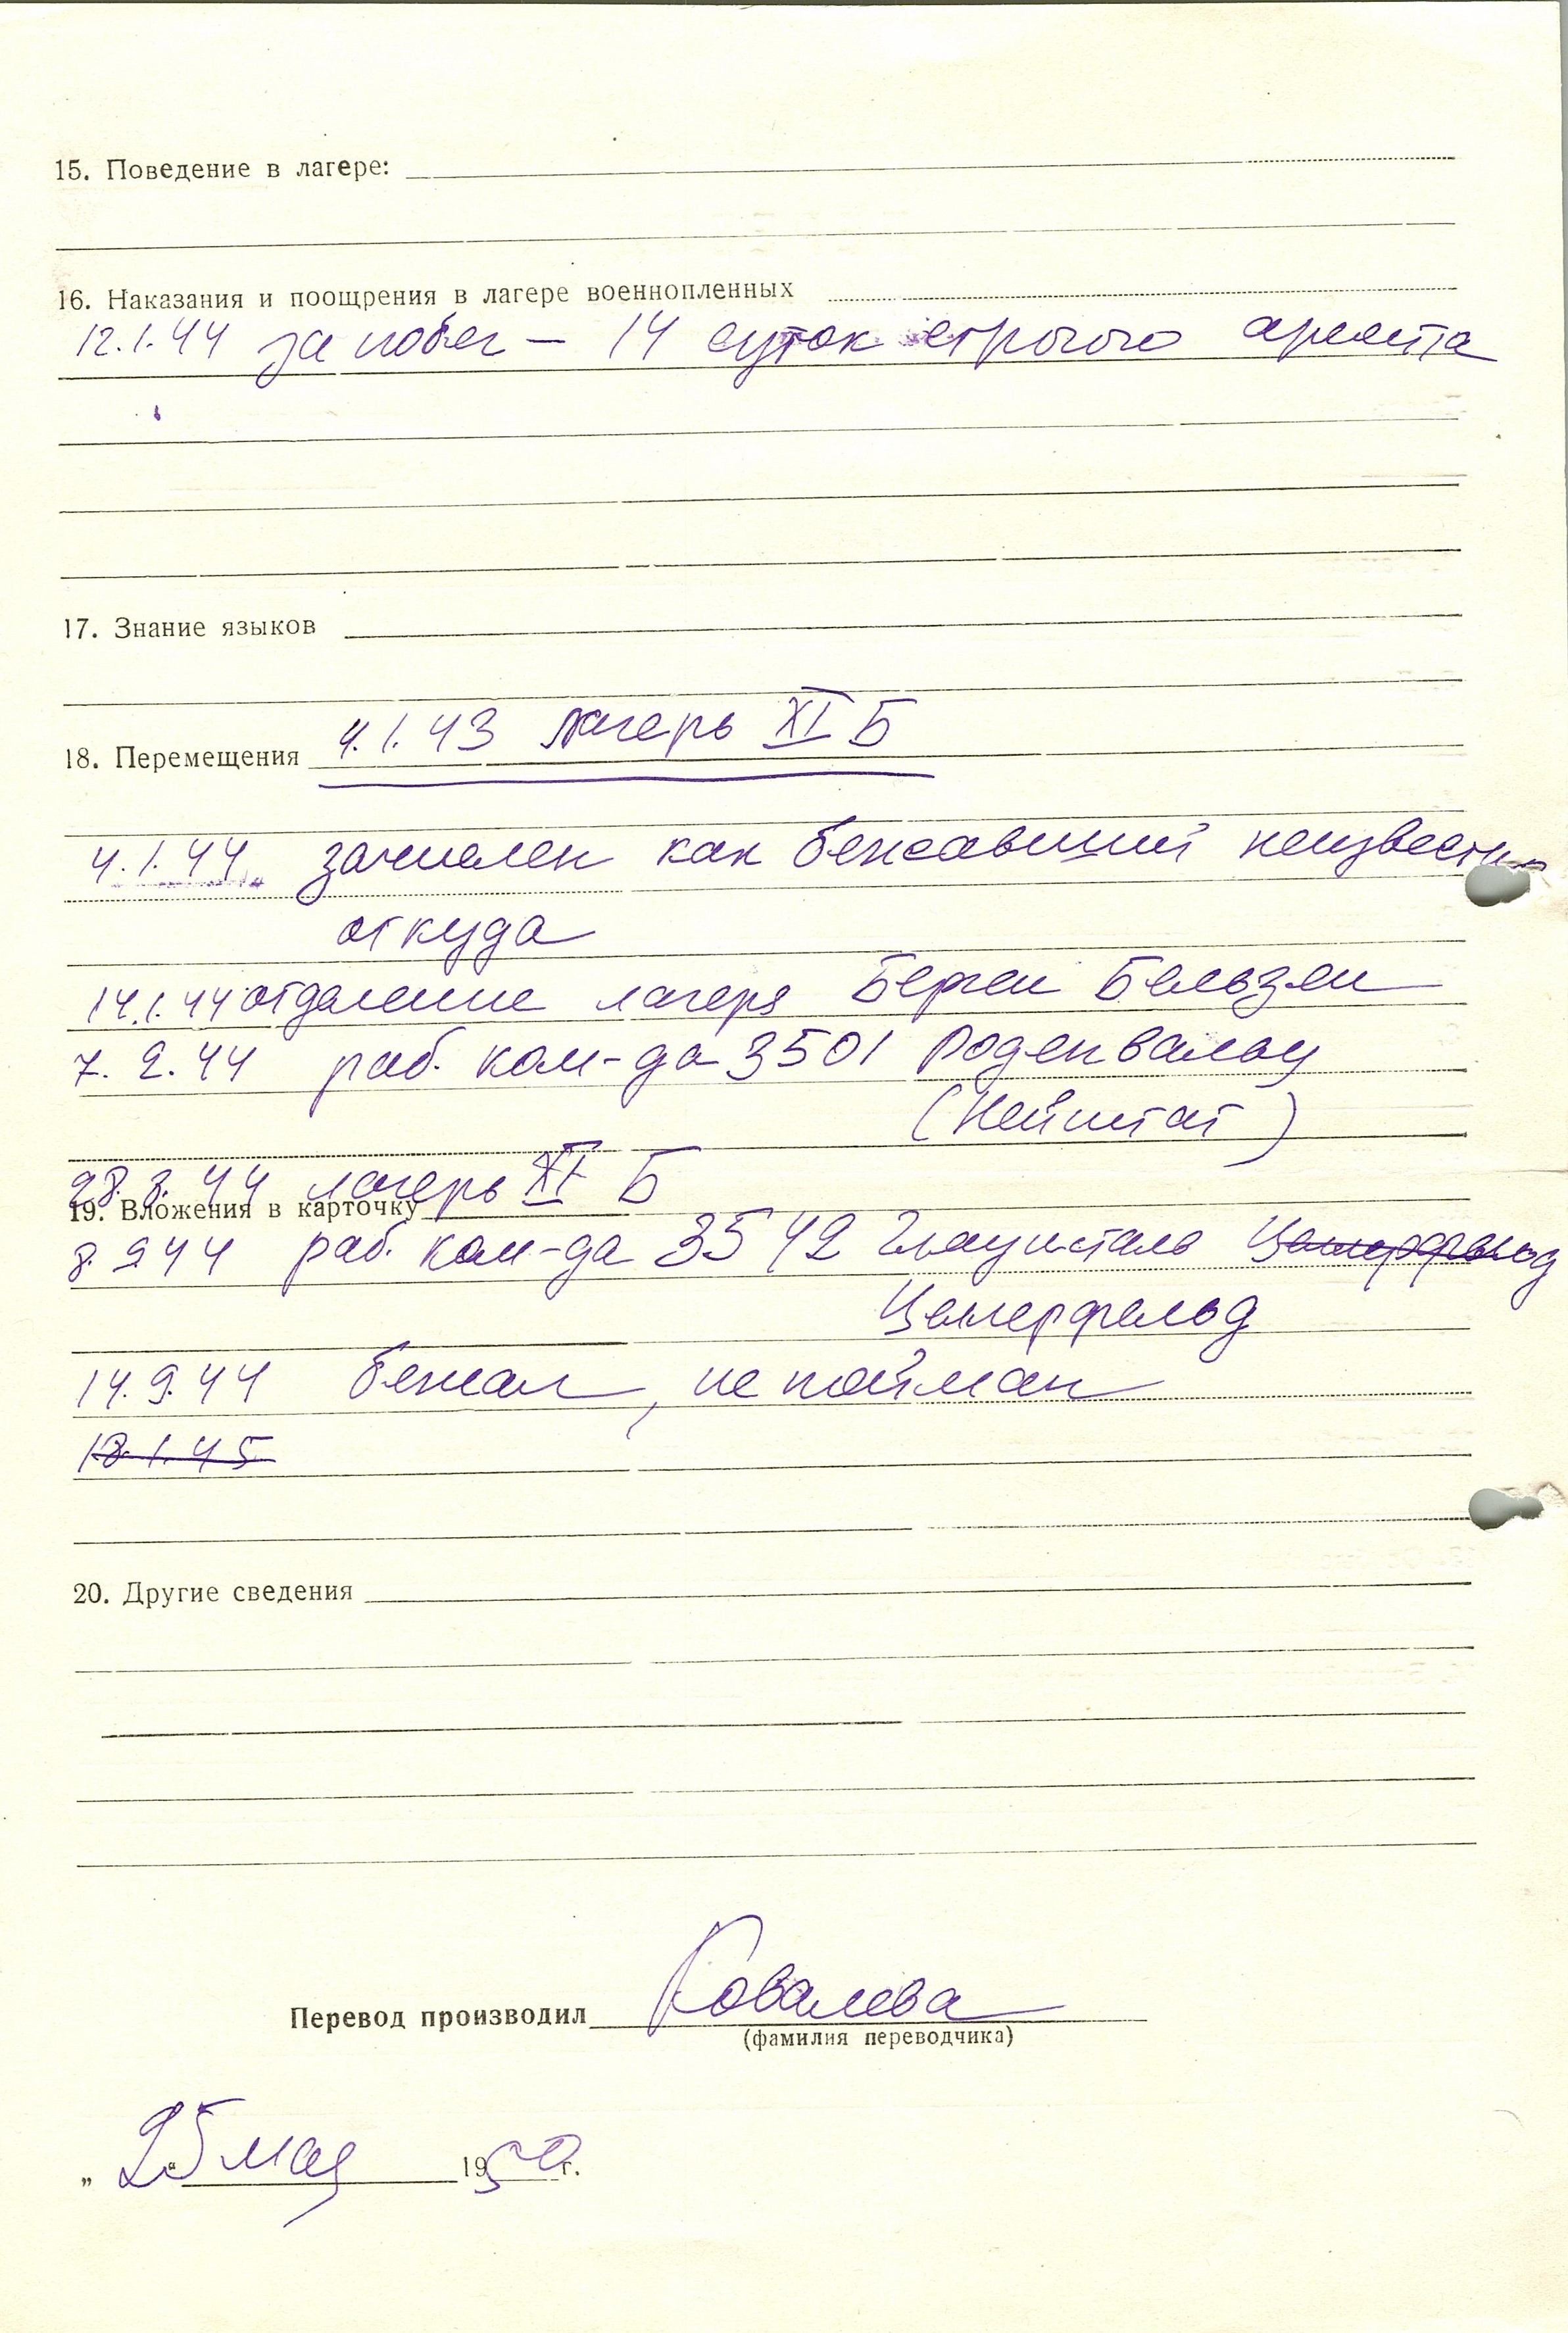 15. Поведение в лагере:
16. Наказания и поощрения в лагере военнопленных
12.1.44 за побег — 14 суток строгого ареста
17. Знание языков
18. Перемещения 4.1.43 лагерь XI Б
4.1.44 зачислен как бежавший неизвестно
откуда
14.1.44 отделение лагеря Берген Бельзен
7.2.44 раб. ком-да 3501 Роденвальд
(Нейштат)
28.8.44 лагерь XI Б
19. Вложения в карточку
8.9.44 раб. ком-да 3542
Целлерфельд
14.9.44 бежал, не пойман
18.1.45
20. Другие сведения
Перевод производил Ковалева
(фамилия переводчика)
„25" мая 1950 г.